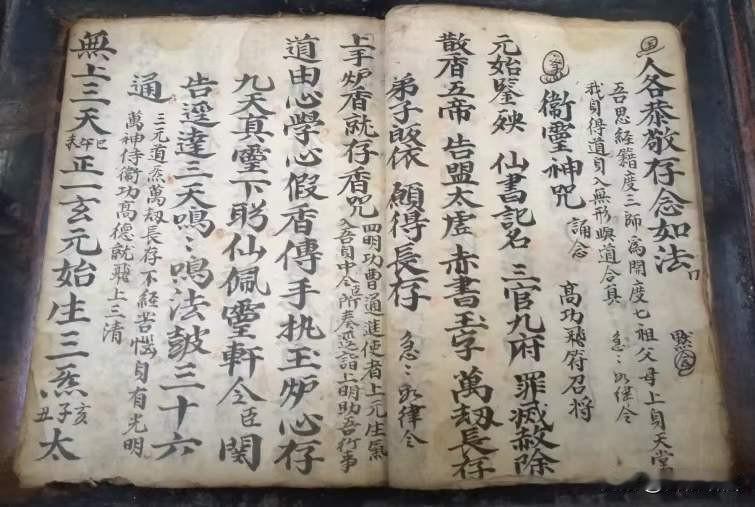 人各恭敬存念如法 默念
吾思經籍度三師為開度七祖父母上身天堂
我身得道身入無形與道合真 急〻如律令
衞靈神咒 誦念 高功飛符召将
元始鑒殃 仙書記名 三官九府 罪滅赦除
散香五帝 告盟太虛 赤書玉字 萬劫長存
弟子皈依 願得長存 急〻如律令
上手炉香就存香咒 四明功曹通進使者上元生氣
入吾身中令臣所奏逕詣上明助吾行事
道由心學心假香傳手执玉炉心存
九天真靈下盻仙佩靈軒今臣関
告逕達三天鳴〻鳴法皷三十六
通 三元道炁萬劫長存不經苦惱身有光明
萬神侍衛功高德就飛上三清
無上三天巳午未正一玄元始生三炁亥子丑太